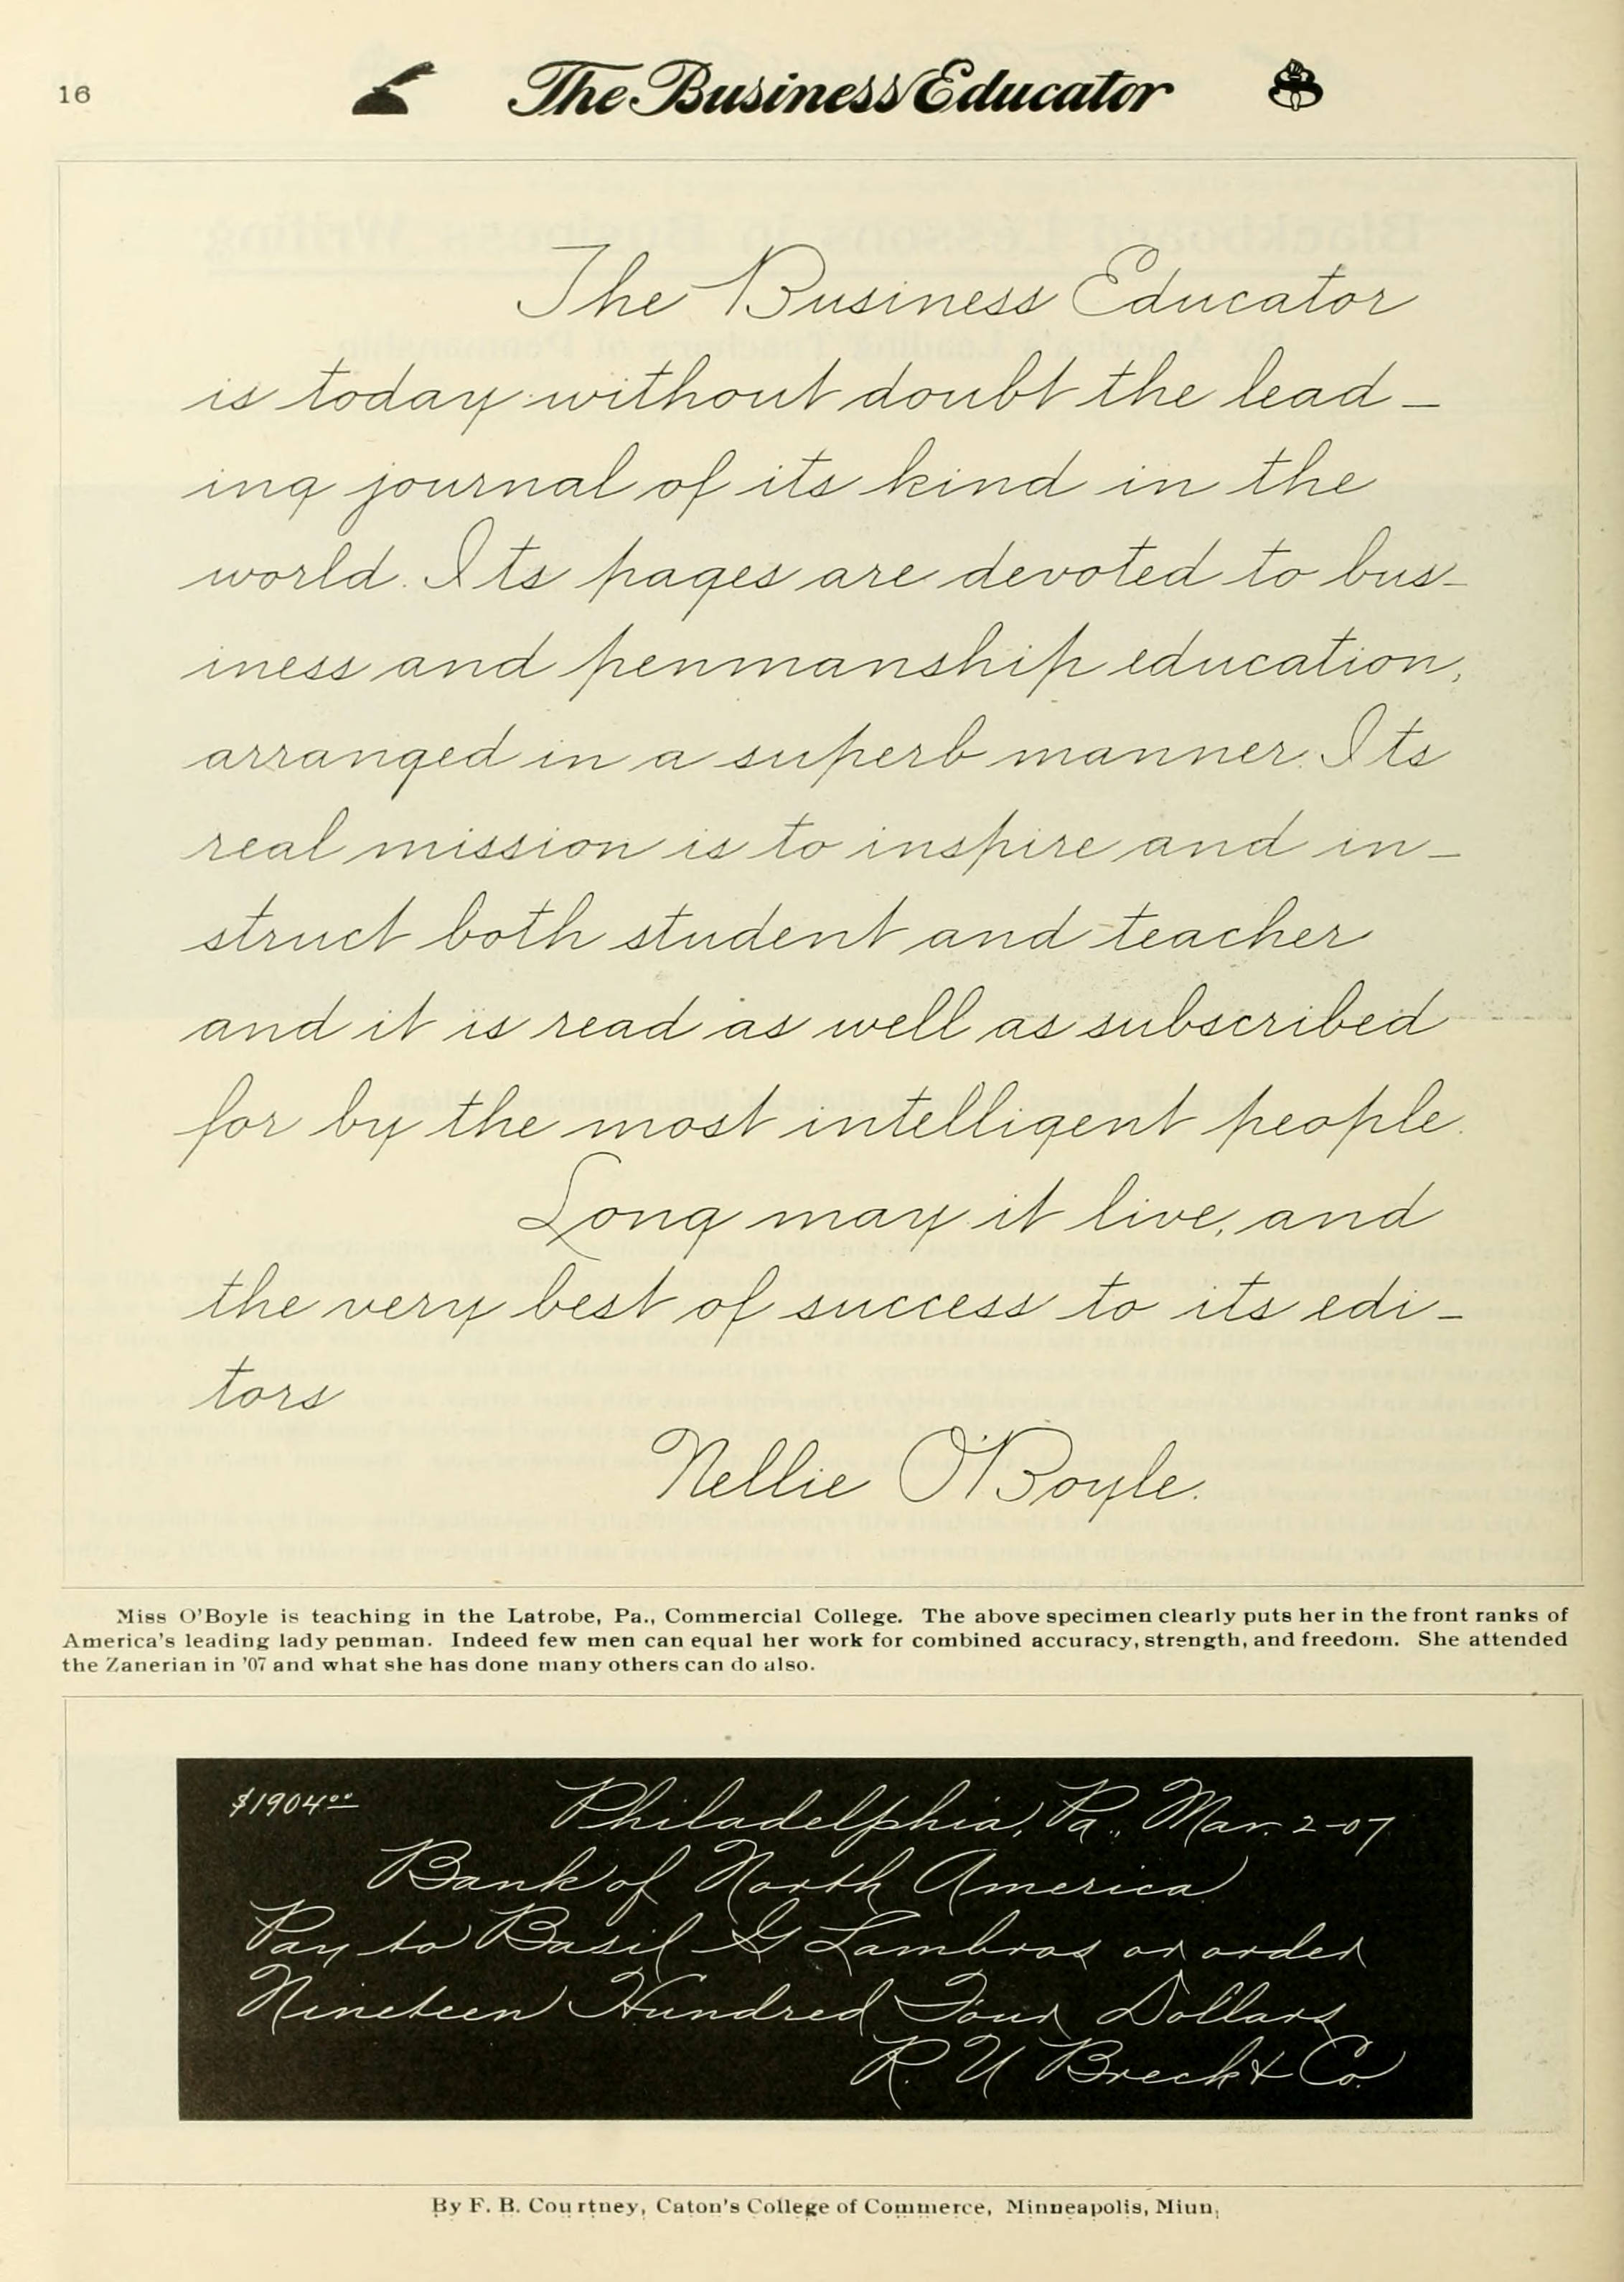 16
The Business Educator
The Business Educator
is today without doubt the lead-
ing journal of its kind in the
world. Its pages are devoted to bus-
iness and penmanship education,
arranged in a superb manner. Its
real mission is to inspire and in-
struct both student and teacher
and it is read as well as subscribed
for by the most intelligent people.
Long may it live, and
the very best of success to its edi-
tors
Nellie O'Boyle.
Miss O'Boyle is teaching in the Latrobe, Pa., Commercial College. The above specimen clearly puts her in the front ranks of
America's leading lady penman. Indeed few men can equal her work for combined accuracy, strength, and freedom. She attended
the Zanerian in '07 and what she has done many others can do also.
$1904.00 Philadelphia, Pa., Mar. 2-07
Bank of North America
Pay to Basil G Lambros or order
Nineteen Hundred Four Dollars
R. U Breck & Co.
By F. B. Courtney, Caton's College of Commerce, Minneapolis, Minn.